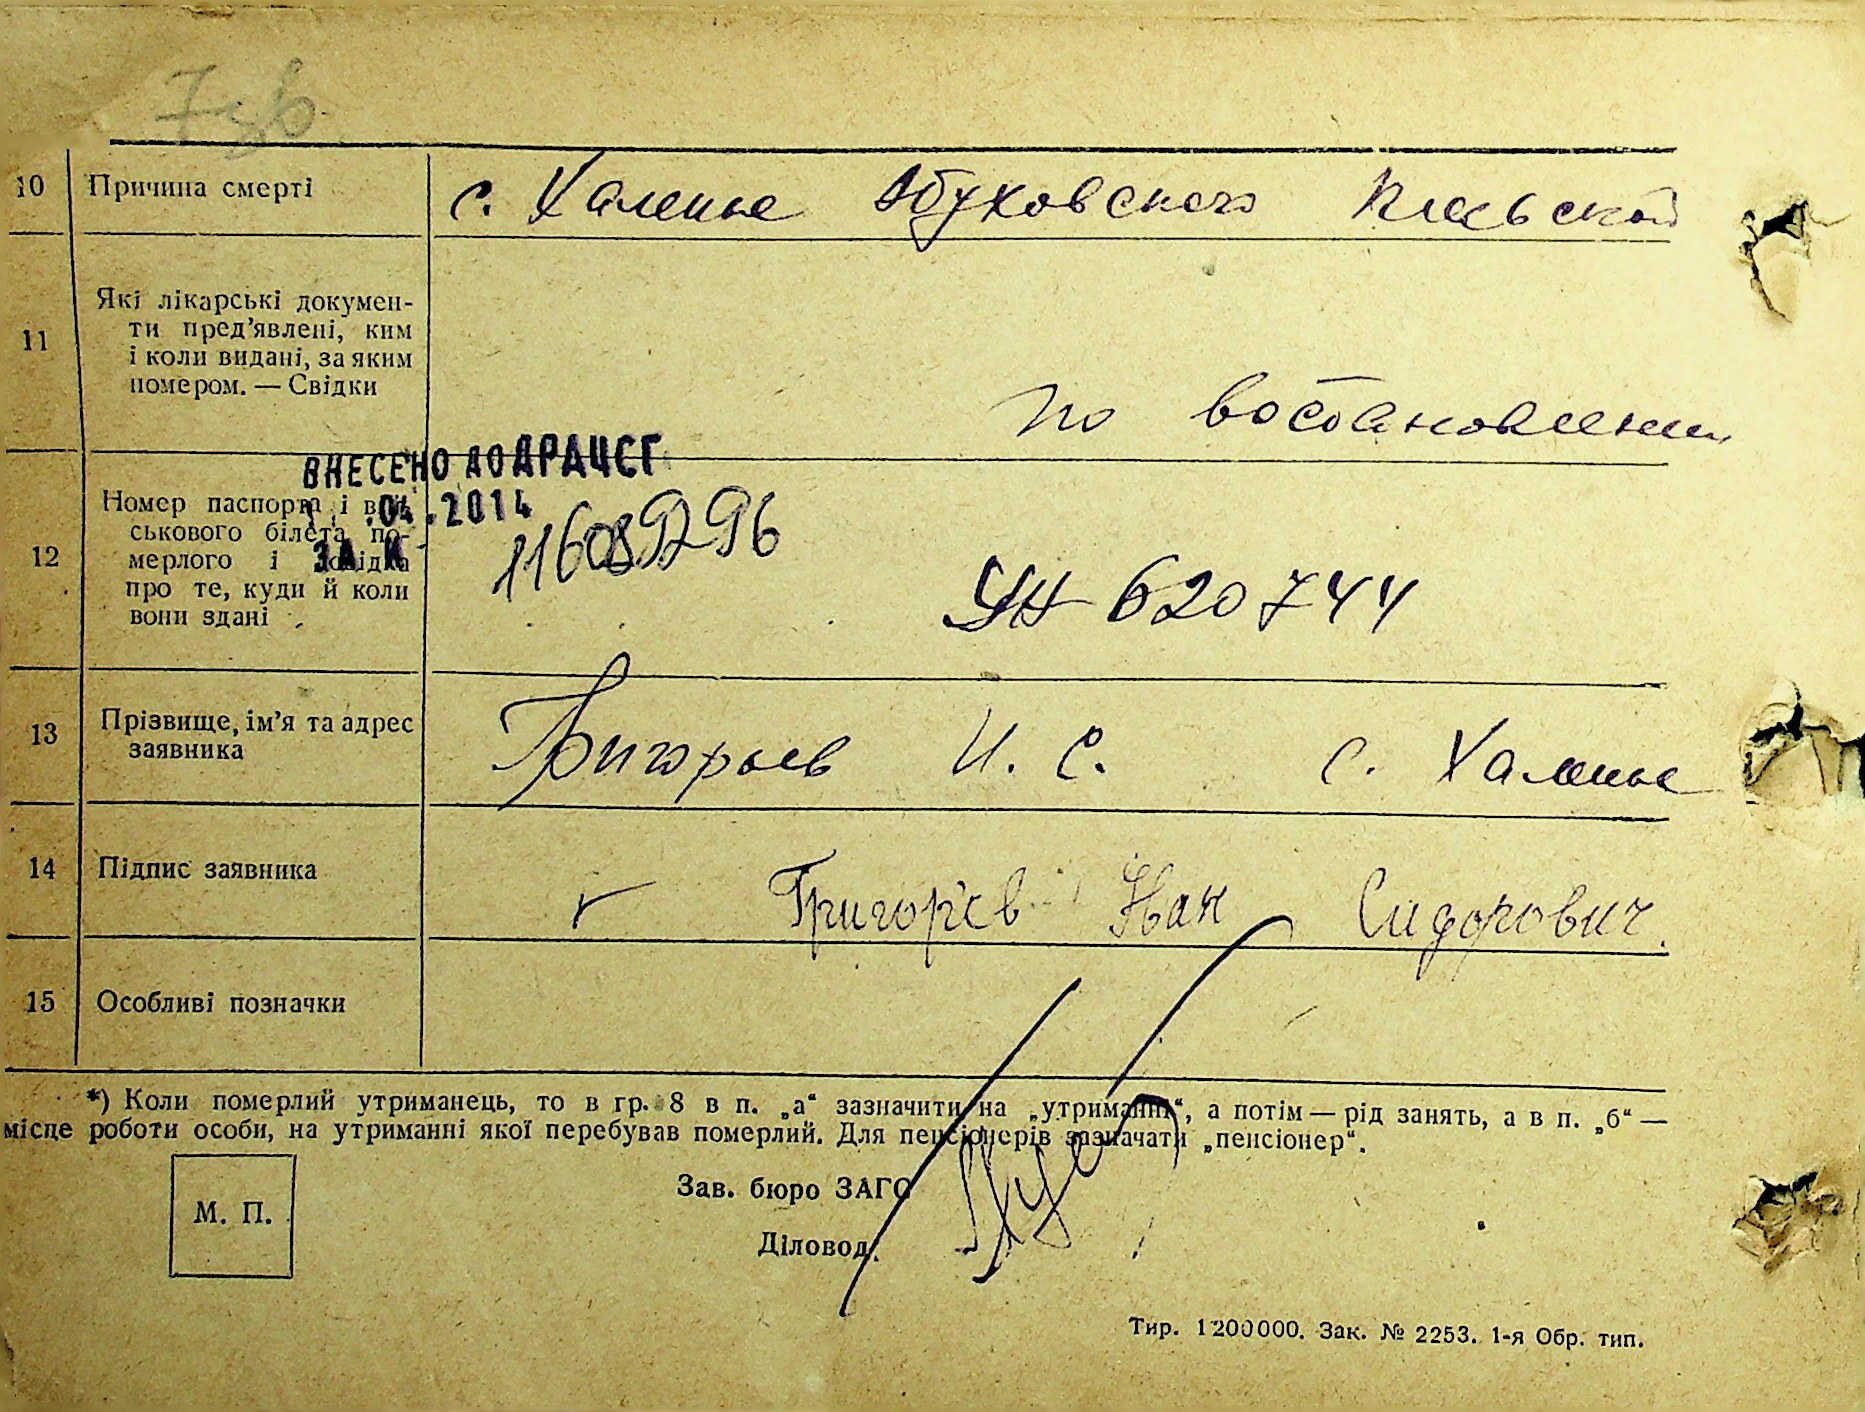 7зв.
10 Причина смерті с. Халепье Обуховского Киевской
11 Які лікарські докумен-
ти пред'явлені, ким
і коли видані, за яким
номером. — Свідки по востановлении
ВНЕСЕНО ДО ДРАЦСГ
.04.2014
ЗА №
116089296
12 Номер паспорта і вій-
ськового білета по-
мерлого і довідка
про те, куди й коли
вони здані
620744
13 Прізвище, ім'я та адрес
заявника Григорьев И. С. с. Халепье
14 Підпис заявника Григор'єв Іван Сидорович.
15 Особливі позначки
*) Коли померлий утриманець, то в гр. 8 в п. „а“ зазначити на „утриманні“, а потім — рід занять, а в п. „б“ —
місце роботи особи, на утриманні якої перебував померлий. Для пенсіонерів зазначати „пенсіонер“.
М. П.
Зав. бюро ЗАГС
Діловод
Тир. 1200000. Зак. № 2253. 1-я Обр. тип.